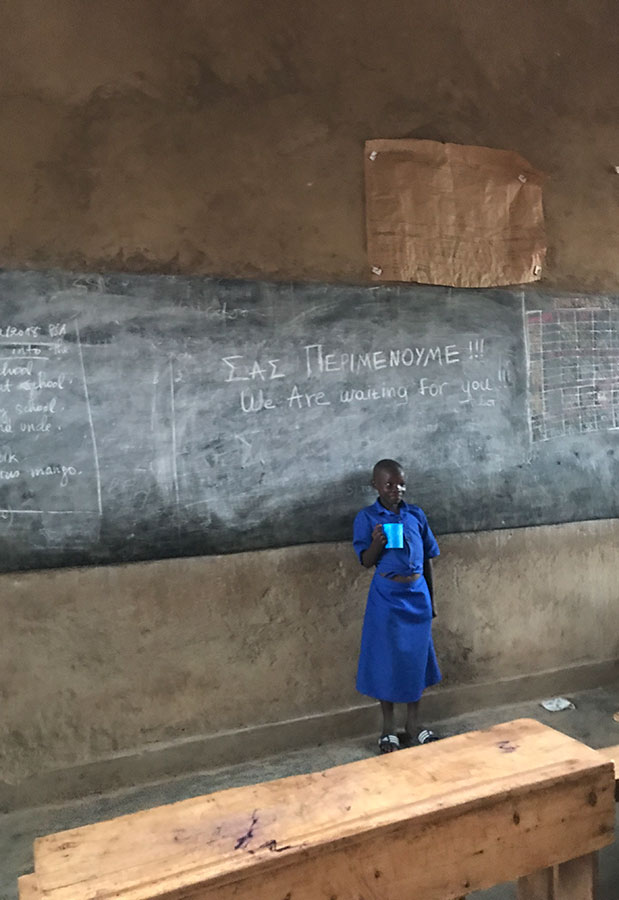 into
school
school.
school.
mango.
ΣΑΣ ΠΕΡΙΜΕΝΟΥΜΕ !!!
We Are waiting for you !!